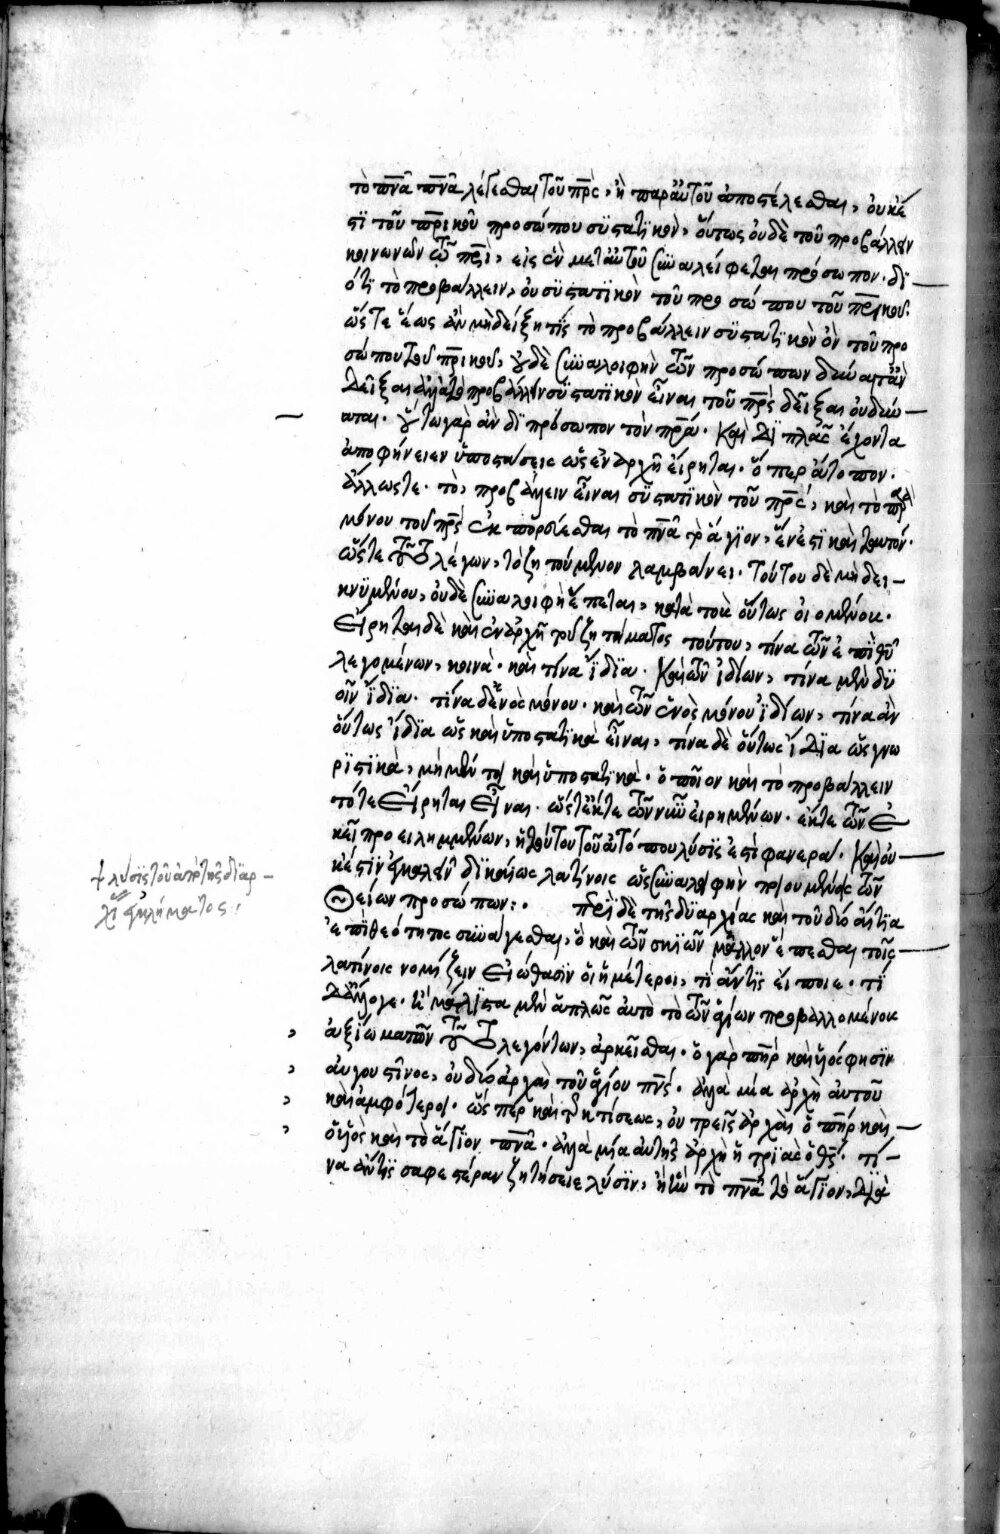 τὸ π̅ν̅α̅ π̅ν̅α̅ λέγεσθαι τοῦ π̅ρ̅ς̅, ἢ παρ' αὐτοῦ ἀποστέλεσθαι, οὐκ ἔ
στϊ τοῦ π̅ρ̅ικοῦ προσώπου συστατϊκὸν, οὕτως οὐδὲ τοῦ προβάλλειν
κοινωνῶν τῶ π̅ρ̅ὶ, εἰς ἓν μετ' αὐτοῦ συναλείφεται πρόσωπον. δϊ
ότϊ τὸ προβάλλειν, οὐ συστατϊκὸν τοῦ προσώπου τοῦ π̅ρ̅ικοῦ.
ὥστε ἕως ἂν μὴ δείξη τὶς τὸ προβάλλειν συστατϊκὸν ὂν τοῦ προ
σώπου τοῦ π̅ρ̅ικοῦ, οὐδὲ συναλοιφὴν τῶν προσώπων δύναιτ' ἂν
δεῖξαι ἀλλὰ τὸ προβάλλειν συστατϊκὸν εἶναι τοῦ π̅ρ̅ς̅ δεῖξαι οὐ δύν
αται. οὕτω γὰρ ἂν δϊπρόσωπον τὸν π̅ρ̅α̅. Καὶ δϊπλᾶς ἔχοντα
ἀποφήνειεν ὑποστάσεις ὡς ἐν ἀρχῆ εἴρηται. ὅπερ ἄτοπον.
ἄλλωστε. τὸ, προβάλλειν εἶναι συστατϊκὸν τοῦ π̅ρ̅ς̅, καὶ τὸ παρὰ
μόνου τοῦ π̅ρ̅ς̅ ἐκπορεύεσθαι τὸ π̅ν̅α̅ τὸ ἅγϊον, ἕν ἐστϊ καὶ ταυτόν.
ὥστε λέγων, τὸ ζητούμενον λαμβάνει. Τούτου δὲ μὴ δει-
κνυμένου, οὐδὲ συναλοιφὴ ἕπεται, κατὰ τοὺς οὕτως οἰομένους.
Εἴρηται δὲ καὶ ἐν ἀρχῆ τοῦ ζητήματος τούτου, τίνα τῶν ἐπὶ θ̅υ̅
λεγομένων, κοινὰ. καὶ τίνα ἴδϊα. Καὶ τῶν ἰδίων, τίνα μὲν δυ
οῖν ἴδϊα. τίνα δ' ἑνὸς μόνου. καὶ τῶν ἑνὸς μόνου ἰδίων, τίνα ἂν
οὕτως ἴδϊα ὡς καὶ ὑποστατϊκὰ εἶναι, τίνα δὲ οὕτως ἴδϊα ὡς γνω
ρϊστϊκὰ, μὴ μέν τοι καὶ ὑποστατϊκὰ. ὁποῖον καὶ τὸ προβάλλειν
τότε εἴρηται εἶναι. ὥστ' ἔκ τε τῶν νῦν εἰρημένων. ἔκ τε τῶν ἐ
κεῖ προειλημμένων, ἡ τούτου τοῦ ἀτόπου λύσϊς ἐστὶ φανερὰ. Καὶ οὐ
κ ἔστϊν ἐγκαλεῖν δϊκαίως λατίνοις ὡς συναλοιφὴν ποιουμένοις τῶν
Θείων προσώπων:. Περὶ δὲ τῆς δϋαρχίας καὶ τοῦ δύο αἴτϊα
ἐπϊθεότητος συνάγεσθαι, ὃ καὶ τῶν σκϊῶν μᾶλλον ἕπεσθαι τοῖς
λατίνοις νομίζειν εἰώθασϊν οἱ ἡμέτεροι, τϊ ἄν τϊς εἴποιε. τί
δ' ἄλλο γε. ἢ μάλϊστα μὲν ἁπλῶς αὐτὸ τὸ τῶν ἁγίων προβαλλομένοις
ἀξϊώματϊ τῶν λεγόντων, ἀρκεῖσθαι. ὁ γὰρ π̅η̅ρ̅ καὶ υἱός φησϊν
αὐγουστῖνος, οὐ δύο ἀρχαὶ τοῦ ἁγίου π̅ν̅ς̅. ἀλλὰ μία ἀρχὴ αὐτοῦ
καὶ ἀμφότεροι. ὥσπερ καὶ τῆς κτίσεως, οὐ τρεῖς ἀρχαὶ ὁ π̅η̅ρ̅ καὶ
ὁ υἱὸς καὶ τὸ ἅγϊον π̅ν̅α̅. ἀλλὰ μία αὐτῆς ἀρχὴ ἡ τρϊὰς ὁ θ̅ς̅. τί-
να ἄν τϊς σαφεστέραν ζητήσειε λύσϊν, ἢ τὸ π̅ν̅α̅ τὸ ἅγϊον, διὰ
† λύσϊς τοῦ ἀπὸ τῆς δϊαρ-
χί ἐγκλήματος: